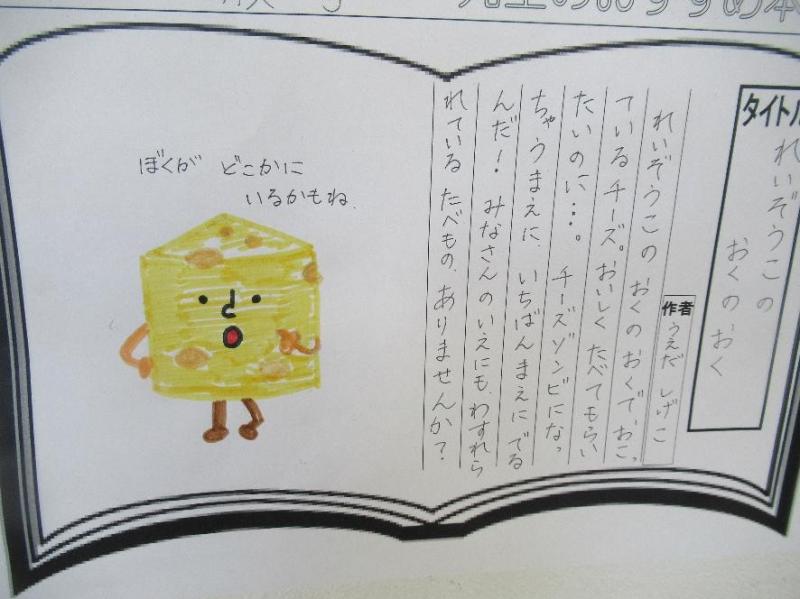 先生のおすすめ本
タイトル
れいぞうこの
おくのおく
作者 うえだ しげこ
れいぞうこの おくのおくで、おこっ
ているチーズ。おいしく たべてもらい
たいのに…。 チーズゾンビになっ
ちゃうまえに、いちばんまえにでる
んだ! みなさんのいえにも、わすれら
れている たべもの、ありませんか?
ぼくが どこかに
いるかもね.